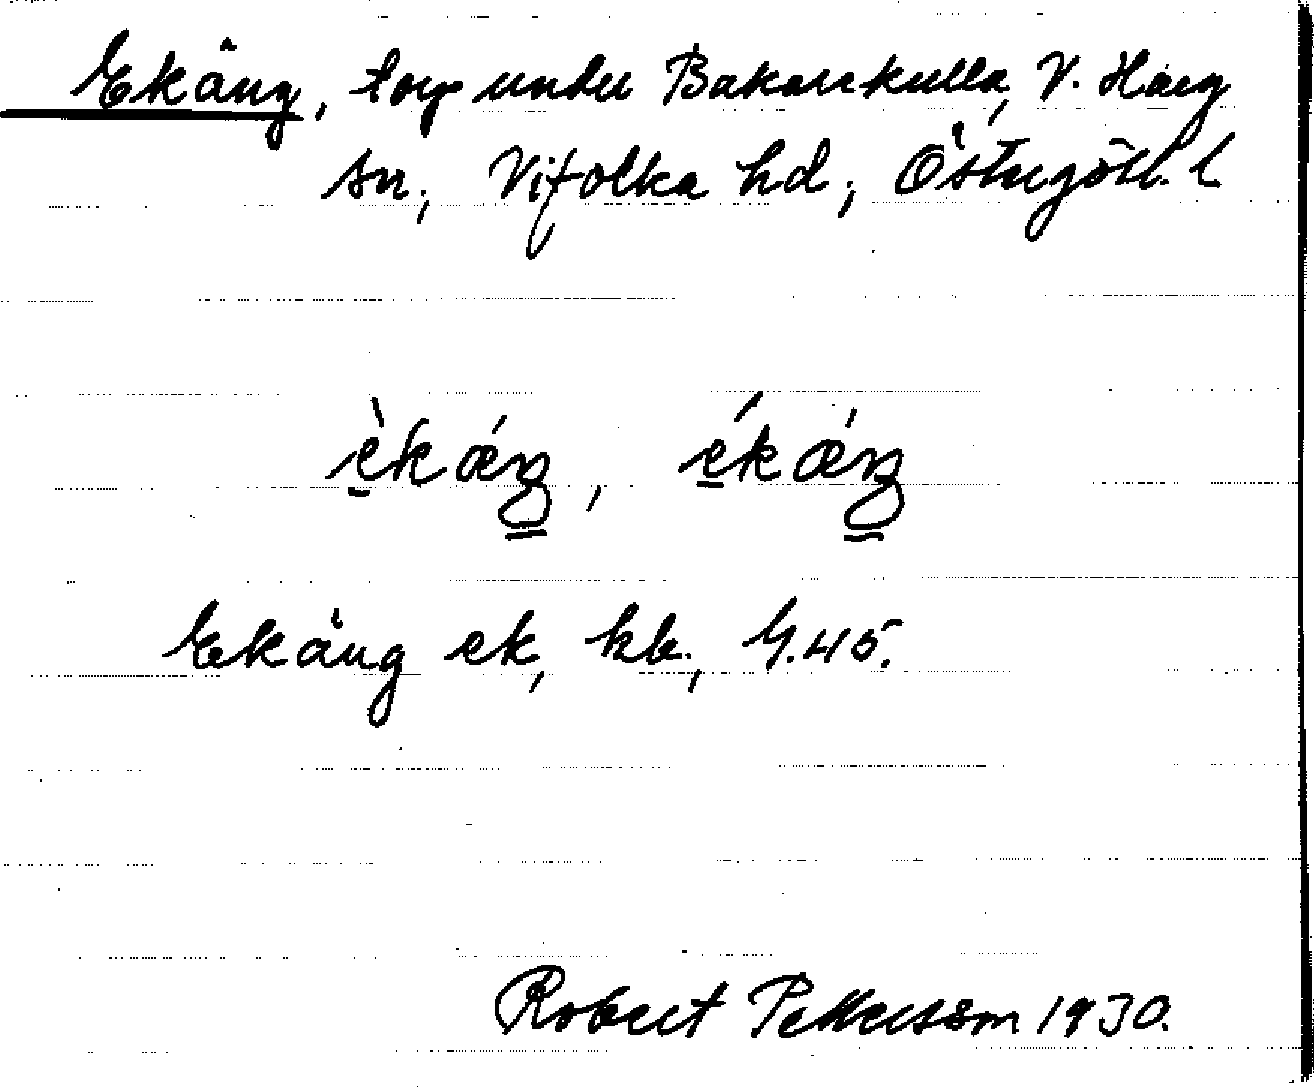 Ekäng, torp under Bakarekulla, V. Harg
sn, Vifolka hd, Östergötl. l.
èkǽŋ, ékǽŋ
Ekäng ek, kb, G.45.
Robert Pettersson 1930.